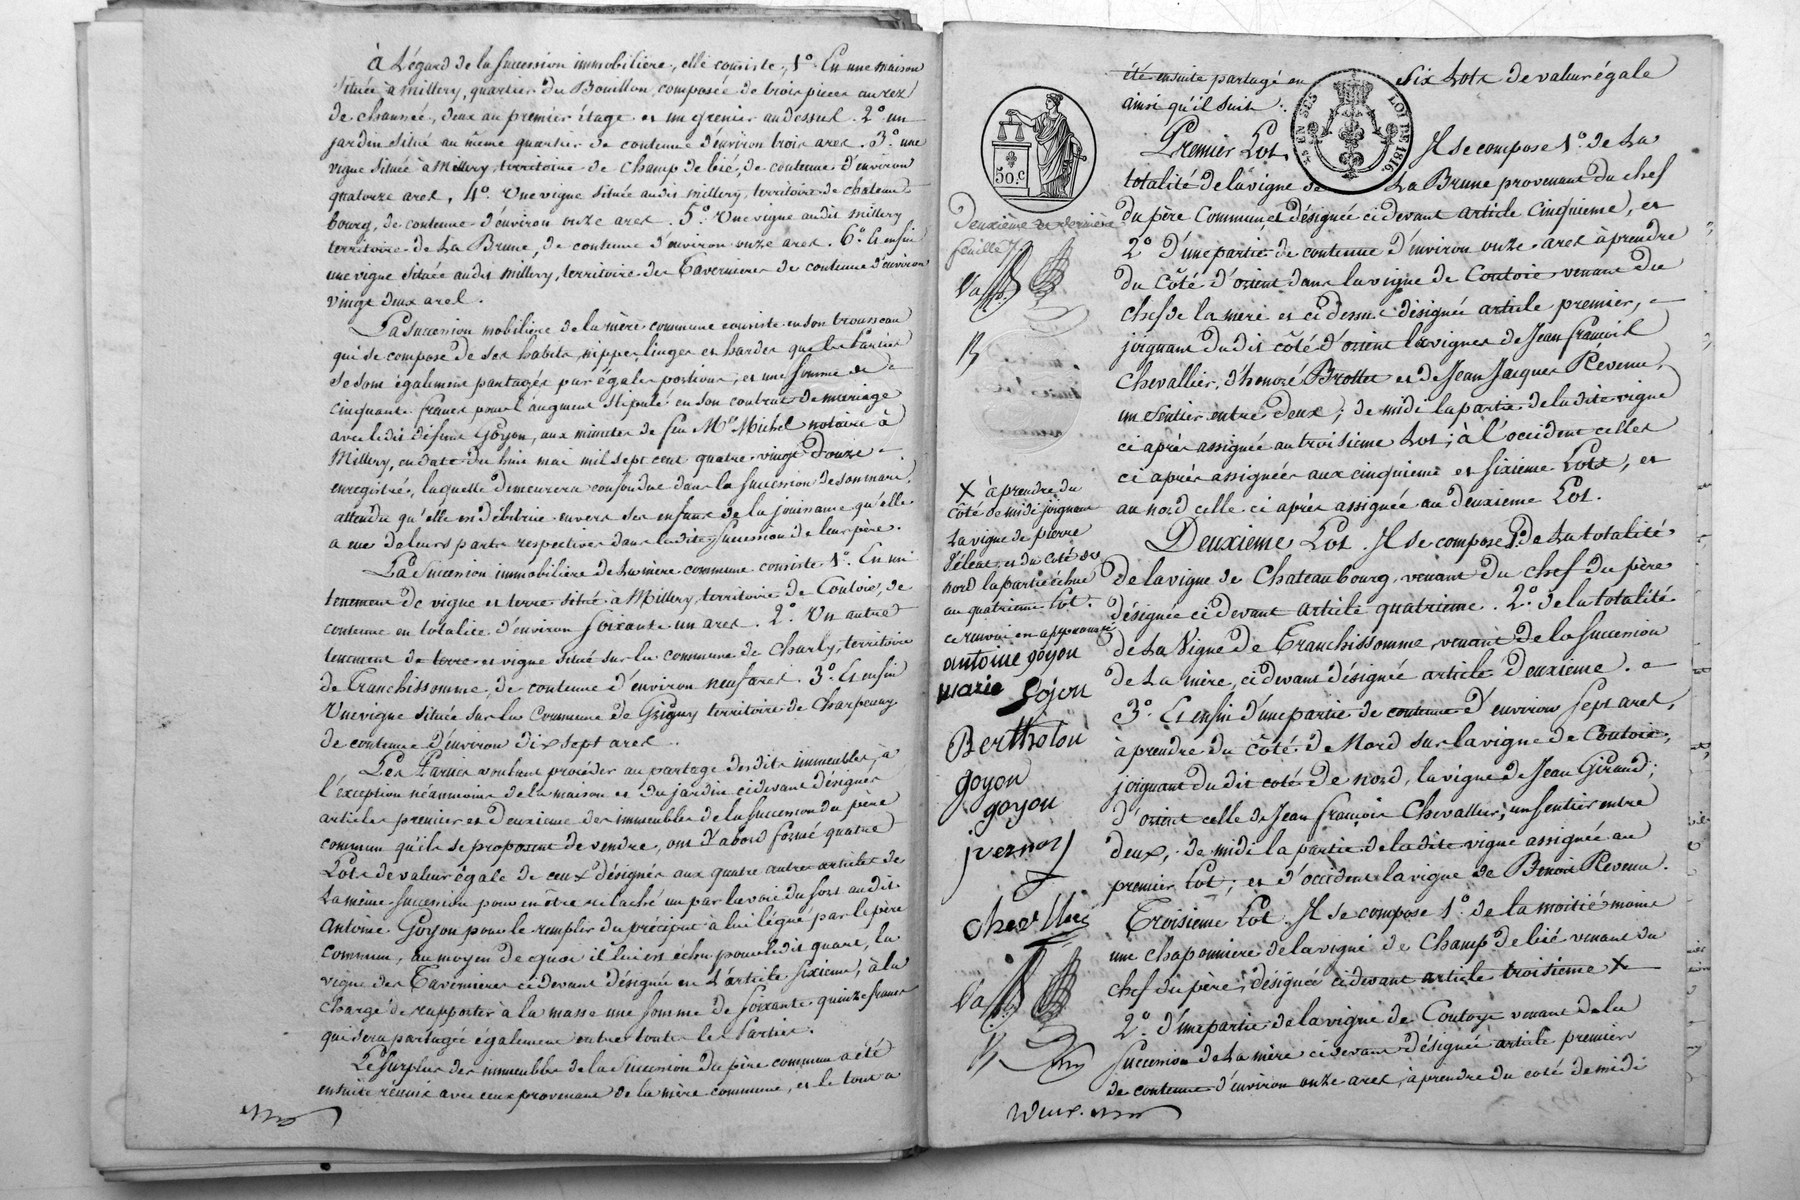 à l'égard de la succession immobilière, elle consiste, 1º. En une maison
située à Millery, quartier du Bouillon, composée de trois pieces au rez
de chaussée, deux au premier étage et un grenier au dessus. 2º. un
jardin situé au même quartier de contenue d'environ trois ares. 3º. une
vigne située à Millery territoire de Champ de lié, de contenue d'environ
quatorze ares, 4º. Une vigne située audit Millery, territoire de chateau
bourg, de contenue d'environ onze ares. 5º. Une vigne audit Millery
territoire de La Brune, de contenue d'environ onze ares. 6º. Et enfin
une vigne située audit Millery, territoire des Tavernieres de contenue d'environ
vingt deux ares.
La succession mobilière de la mère commune consiste en son trousseau
qui se compose de ses habits, nippes, linges et hardes que les Parties
se sont également partagés par égales portions, et une somme de
cinquante francs pour l'augment stipulé en son contrat de mariage
avec ledit défunt Goyon, aux minutes de feu Me. Michel notaire à
Millery, en date du huit mai mil sept cent quatre vingt douze
enregistrés, laquelle demeurera confondue dans la succession de son mari,
attendu qu'elle est débitrice envers ses enfans de la jouissance qu'elle
a eue de leurs parts respectives dans ladite succession de leur père.
La succession immobilière de la mère commune consiste 1º. En un
tenement de vigne et terre situé à Millery, territoire de Coutoie, de
contenue en totalité d'environ soixante un ares. 2º. Un autre
tenement de terre et vigne situé sur la commune de Charly, territoire
de Franchissomme, de contenue d'environ neuf ares. 3º. Et enfin
Une vigne située sur la Commune de Grigny territoire de Charpenay
de contenue d'environ dix sept ares.
Les Parties voulant procéder au partage desdits immeubles, à
l'exception néanmoins de la maison et du jardin cidevant désignés
articles premier et deuxième des immeubles de la succession du père
commun qu'ils se proposent de vendre, ont d'abord formé quatre
Lots de valeur égale de ceux désignés aux quatre autres articles de
la même succession pour en être relaché un par la voie du sort audit
Antoine Goyon pour le remplir du préciput à lui légué par le père
commun, au moyen de quoi il lui est échu pour ledit quart, la
vigne des Tavernieres cidevant désignée en l'article sixieme, à la
charge de rapporter à la masse une somme de soixante quinze francs
qui sera partagée également entre toutes les Parties.
Le surplus des immeubles de la succession du père commun a été
ensuite réuni avec ceux provenant de la mère commune, et le tout a
été ensuite partagé en six Lots de valeur égale
ainsi qu'il suit :
50.c
EN SUS LOI DE 1816.
Premier Lot. Il se compose 1º. de La
totalité de la vigne de La Brune provenant du chef
du père Commun, et désignée cidevant article Cinquieme, et
2º d'une partie de contenue d'environ onze ares à prendre
du Côté d'orient dans la vigne de Coutoie venant du
chef de la mère et ci dessus désignée article premier,
joignant dudit côté d'orient les vignes de Jean françois
Chevallier, d'honoré Brottet et de Jean Jacques Revenu,
un sentier entre deux ; de midi la partie de ladite vigne
ci après assignée au troisieme Lot ; à l'occident celles
ci après assignées aux cinquieme et sixieme Lots, et
au nord celle ci après assignée au deuxieme Lot.
Deuxième Lot. Il se compose 1º de la totalité
de la vigne de Chateaubourg, venant du chef du père
désignée cidevant article quatrieme. 2º. de la totalité
de la Vigne de Franchissomme, venant de la succession
de la mère, cidevant désignée article deuxième.
3º. Et enfin d'une partie de contenue d'environ sept ares,
à prendre du côté de Nord sur la vigne de Coutoie,
joignant dudit coté de nord, la vigne de Jean Giraud ;
d'orient celle de Jean françois Chevallier, un sentier entre
deux, de midi la partie de ladite vigne assignée au
premier Lot ; et d'occident la vigne de Benoit Revenu.
Troisieme Lot. Il se compose 1º. de la moitié moins
une chaponniere de la vigne de Champ de lié venant du
chef du père, désignée cidevant article troisieme X
2º. d'une partie de la vigne de Coutoye venant de la
succession de la mère cidevant désignée article premier
de contenue d'environ onze ares, à prendre du coté de midi
Deuxième et dernière
feuille
X à prendre du
côté de midi joignant
la vigne de pierre
et du coté de
nord la partie échue
au quatrieme Lot.
ce renvoi en approuvé
antoine goyon
marie Gojon
Bertholon
goyon
goyon